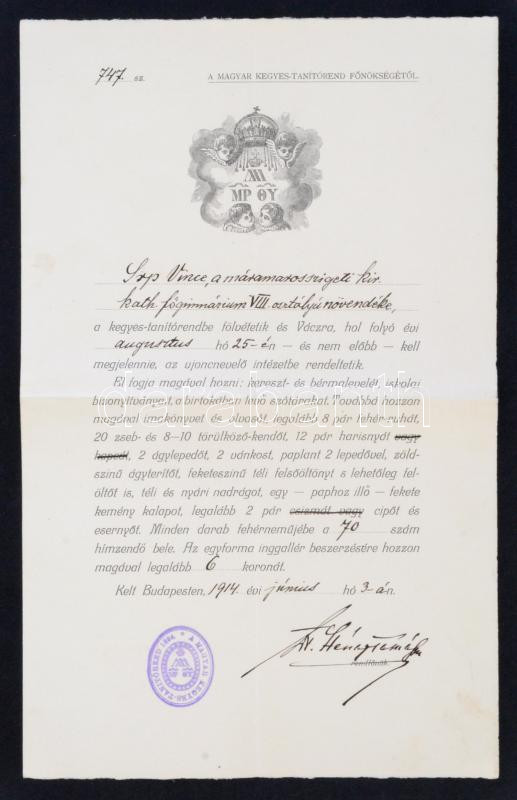 747. sz. A MAGYAR KEGYES-TANÍTÓREND FŐNÖKSÉGÉTŐL.
MP ΘY
Srp Vince, a máramarosszigeti kir.
kath. főgimnázium VIII. osztályú növendéke,
a kegyes-tanítórendbe fölvétetik és Váczra, hol folyó évi
augusztus hó 25-én — és nem előbb — kell
megjelennie, az ujoncnevelő intézetbe rendeltetik.
El fogja magával hozni: kereszt- és bérmalevelét, iskolai
bizonyítványait, a birtokában levő szótárakat. Továbbá hozzon
magával imakönyvet és olvasót, legalább 8 pár fehér-ruhát,
20 zseb- és 8—10 törülköző-kendőt, 12 pár harisnyát vagy
kapcát, 2 ágylepedőt, 2 vánkost, paplant 2 lepedővel, zöld-
színű ágyterítőt, feketeszínű téli felsőöltönyt s lehetőleg fel-
öltőt is, téli és nyári nadrágot, egy — paphoz illő — fekete
kemény kalapot, legalább 2 pár csizmát vagy cipőt és
esernyőt. Minden darab fehérneműjébe a 70 szám
hímzendő bele. Az egyforma inggallér beszerzésére hozzon
magával legalább 6 koronát.
Kelt Budapesten, 1914. évi június hó 3-án.
Dr. Hénap Tamás
rendfőnök
A MAGYAR KEGYES-TANÍTÓREND
darabanth